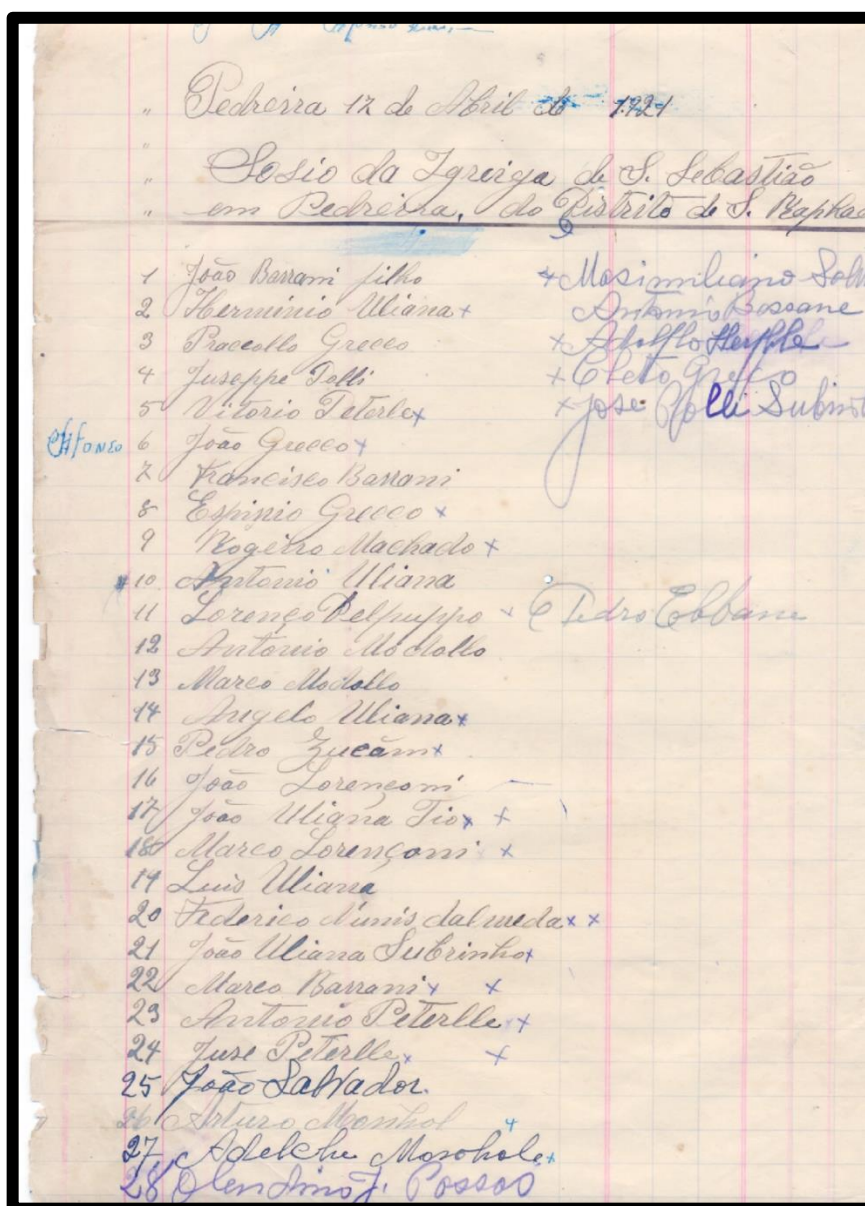 Pedreira 12 de Abril de 1921
Sosio da Igreiga de S. Sebastião
em Pedreira, do Distrito de S. Raphael
1 João Barrani filho
2 Herminio Uliana x
3 Graecco
4 Juseppe Polli
5 Vitorio Peterle x
Affonso 6 João Grecco x
7 Francisco Barrani
8 Grecco x
9 Rogerio Machado x
10 Antonio Uliana
11 Lorenço Delpuppo x
12 Antonio Modollo
13 Marco Modollo
14 Angelo Uliana x
15 Pedro x
16 João Lorenconi
17 João Uliana Tio x x
18 Marco Lorençoni x x
19 Luis Uliana
20 Federico Nunis dalmeda x x
21 João Uliana Subrinho x
22 Marco Barrani x x
23 Antonio Peterlle x
24 Juse Peterlle x x
25 João Salvador.
26 Arturo Monhol x
27 Adelchi x
28 J. Possos
x Masimiliano
Antonio Bossane
x Adolfo
x Cleto Greco
x José Polli
Pedro Ebbane